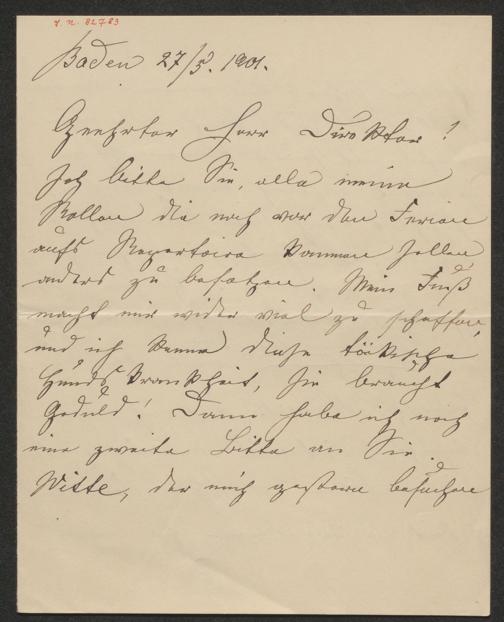 V. N. 82783
Baden 27/5. 1901.
Geehrter Herr Direktor!
Ich bitte Sie, alle meine
Rollen die noch vor den Ferien
aufs Repertoire kommen sollen
anders zu besetzen. Mein Fuß
macht mir wieder viel zu schaffen,
und ich kenne diese tückische
Hundskrankheit, sie braucht
Geduld! Dann habe ich noch
eine zweite Bitte an Sie.
Witte, der mich gestern besuchen